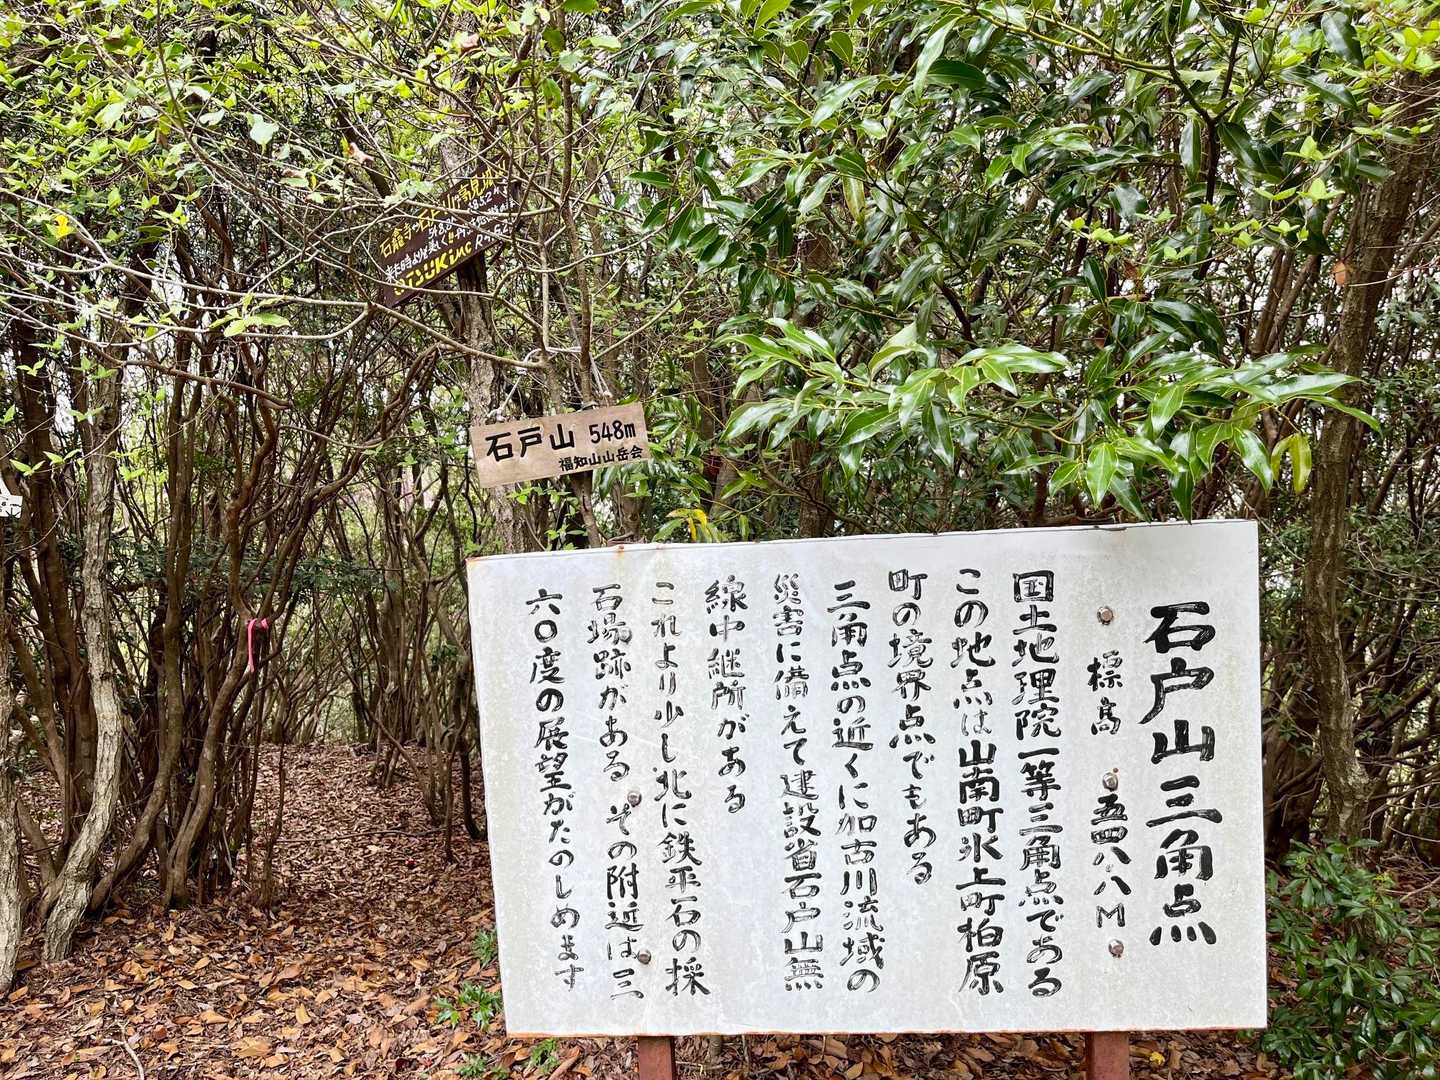 石戸山 548m
福知山山岳会
石戸山三角点
標高 五四八・八M
国土地理院一等三角点である
この地点は山南町氷上町柏原
町の境界点でもある
三角点の近くに加古川流域の
災害に備えて建設省石戸山無
線中継所がある
これより少し北に鉄平石の採
石場跡がある その附近は三
六〇度の展望がたのしめます